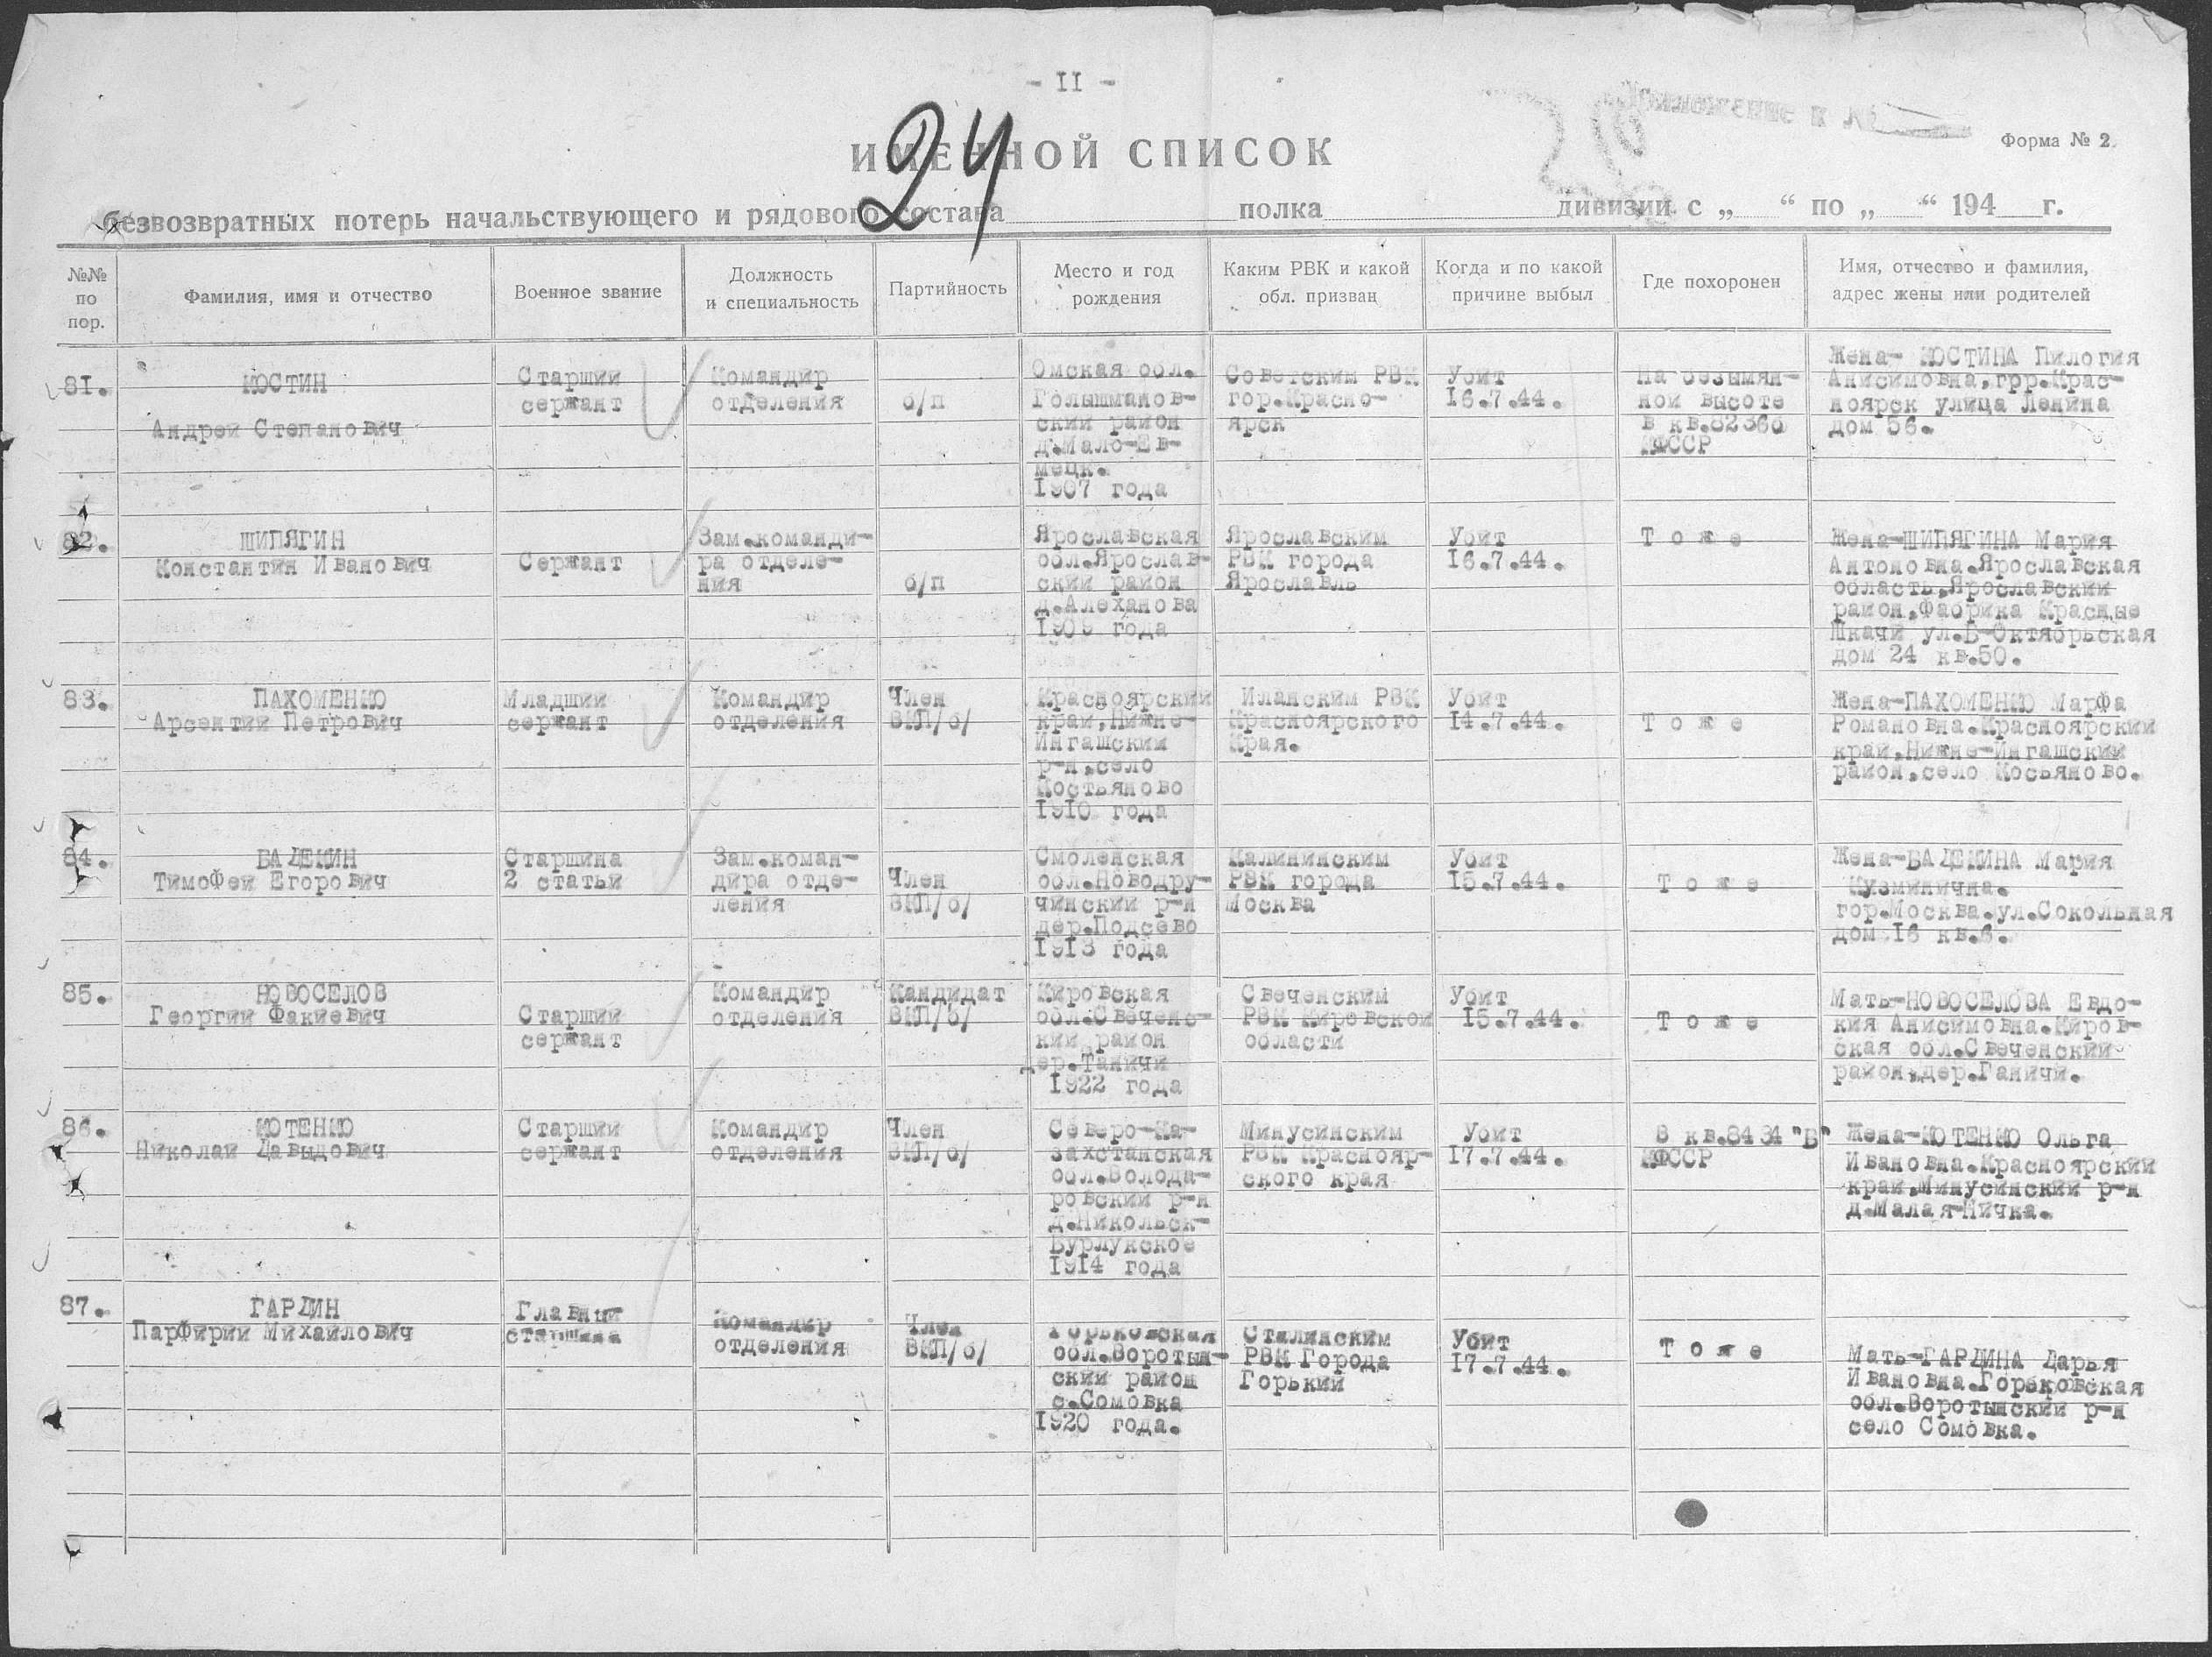 - II -
24
Приложение к №
ИМЕННОЙ СПИСОК
Форма № 2.
безвозвратных потерь начальствующего и рядового состава полка дивизии с „ “ по „ “ 194 г.
№№ по пор.
Фамилия, имя и отчество
Военное звание
Должность и специальность
Партийность
Место и год рождения
Каким РВК и какой обл. призван
Когда и по какой причине выбыл
Где похоронен
Имя, отчество и фамилия, адрес жены или родителей
81.
КОСТИН
Андрей Степанович
Старший
сержант
Командир
отделения
б/п
Омская обл.
Голышманов-
ский район
д.Мало-Ев-
мецк.
1907 года
Советским РВК
гор.Красно-
ярск
Убит
16.7.44.
На безымян-
ной высоте
в кв.8236б
КФССР
Жена- КОСТИНА Пилогия
Анисимовна,гор.Крас-
ноярск улица Ленина
дом 56.
82.
ШИПЯГИН
Константин Иванович
Сержант
Зам.команди-
ра отделе-
ния
б/п
Ярославская
обл.Ярослав-
ский район
д.Алеханова
1909 года
Ярославским
РВК города
Ярославль
Убит
16.7.44.
Т о ж е
Жена-ШИПЯГИНА Мария
Антоновна.Ярославская
область,Ярославский
район,Фабрика Красные
Ткачи ул.Б-Октябрьская
дом 24 кв.50.
83.
ПАХОМЕНКО
Арсентий Петрович
Младший
сержант
Командир
отделения
Член
ВКП/б/
Красноярский
край,Нижне-
Ингашским
р-н,село
Костьяново
1910 года
Иланским РВК
Красноярского
Края.
Убит
14.7.44.
Т о ж е
Жена-ПАХОМЕНКО Марфа
Романовна.Красноярский
край,Нижне-Ингашский
район,село Косьяново.
84.
БАДЕКИН
Тимофей Егорович
Старшина
2 статьи
Зам.коман-
дира отде-
ления
Член
ВКП/б/
Смоленская
обл.Новодру-
чинский р-н
дер.Подсево
1913 года
Калининским
РВК города
Москва
Убит
15.7.44.
Т о ж е
Жена-БАДЕКИНА Мария
Кузминична.
гор.Москва.ул.Сокольная
дом 16 кв.6.
85.
НОВОСЕЛОВ
Георгий Факиевич
Старший
сержант
Командир
отделения
Кандидат
ВКП/б/
Кировская
обл.Свеченс-
кий район
дер.Таничи
1922 года
Свеченским
РВК Кировской
области
Убит
15.7.44.
Т о ж е
Мать-НОВОСЕЛОВА Евдо-
кия Анисимовна.Киров-
ская обл.Свеченский
район,дер.Ганичи.
86.
КОТЕНКО
Николай Давыдович
Старший
сержант
Командир
отделения
Член
ВКП/б/
Северо-Ка-
захстанская
обл.Волода-
ровский р-н
д.Никольск-
Бурлукское
1914 года
Минусинским
РВК Краснояр-
ского края
Убит
17.7.44.
В кв.8434 "Б"
КФССР
Жена-КОТЕНКО Ольга
Ивановна.Красноярский
край,Минусинский р-н
д.Малая-Ничка.
87.
ГАРДИН
Парфирий Михайлович
Главный
старшина
Командир
отделения
Член
ВКП/б/
Горьковская
обл.Воротын-
ский район
с.Сомовка
1920 года.
Сталинским
РВК Города
Горький
Убит
17.7.44.
Т о ж е
Мать-ГАРДИНА Дарья
Ивановна.Горьковская
обл.Воротынский р-н
село Сомовка.